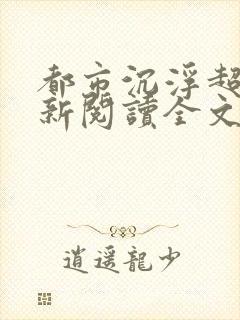 都市沉浮超
新閱讀全文
逍遥龍少